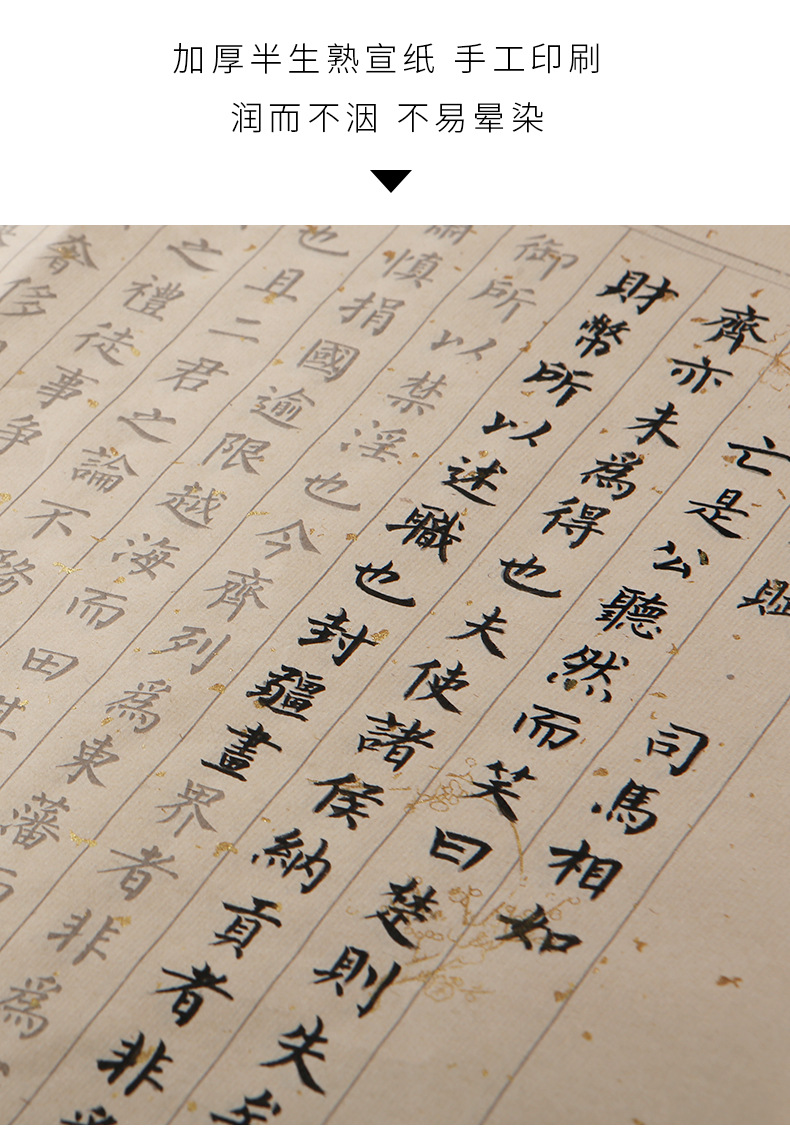 加厚半生熟宣纸 手工印刷
润而不洇 不易晕染
賦
司馬相如
亡是公聽然而笑曰楚則失矣
齊亦未爲得也夫使諸侯納貢者非爲
財幣所以述職也封疆畫界者非爲
御所以禁淫也今齊列爲東藩而
肅慎捐國逾限越海而田其
也且二君之論不務
之禮徒事爭
奢侈